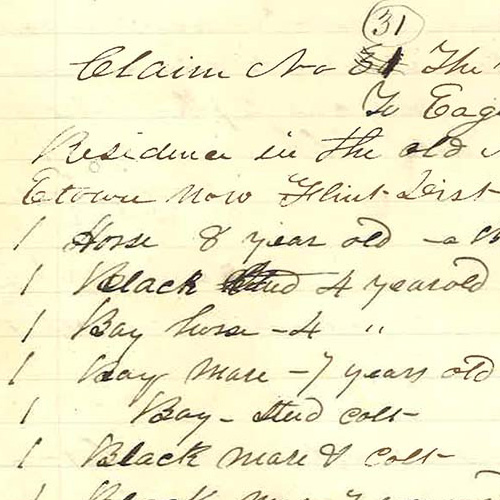 31
Claim No 31 The
To Eag
Residence in the old
Etown now Flint Dist
1 Horse 8 year old - a
1 Black Stud 4 year old
1 Bay horse - 4 "
1 Bay mare - 7 years old
1 Bay - Stud colt
1 Black mare & colt
1 Black